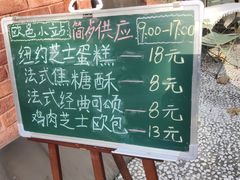 欧邑心站 简餐供应 9:00-17:00
纽约芝士蛋糕 — 18元
法式焦糖酥 — 8元
法式经典可颂 — 8元
鸡肉芝士欧包 — 13元